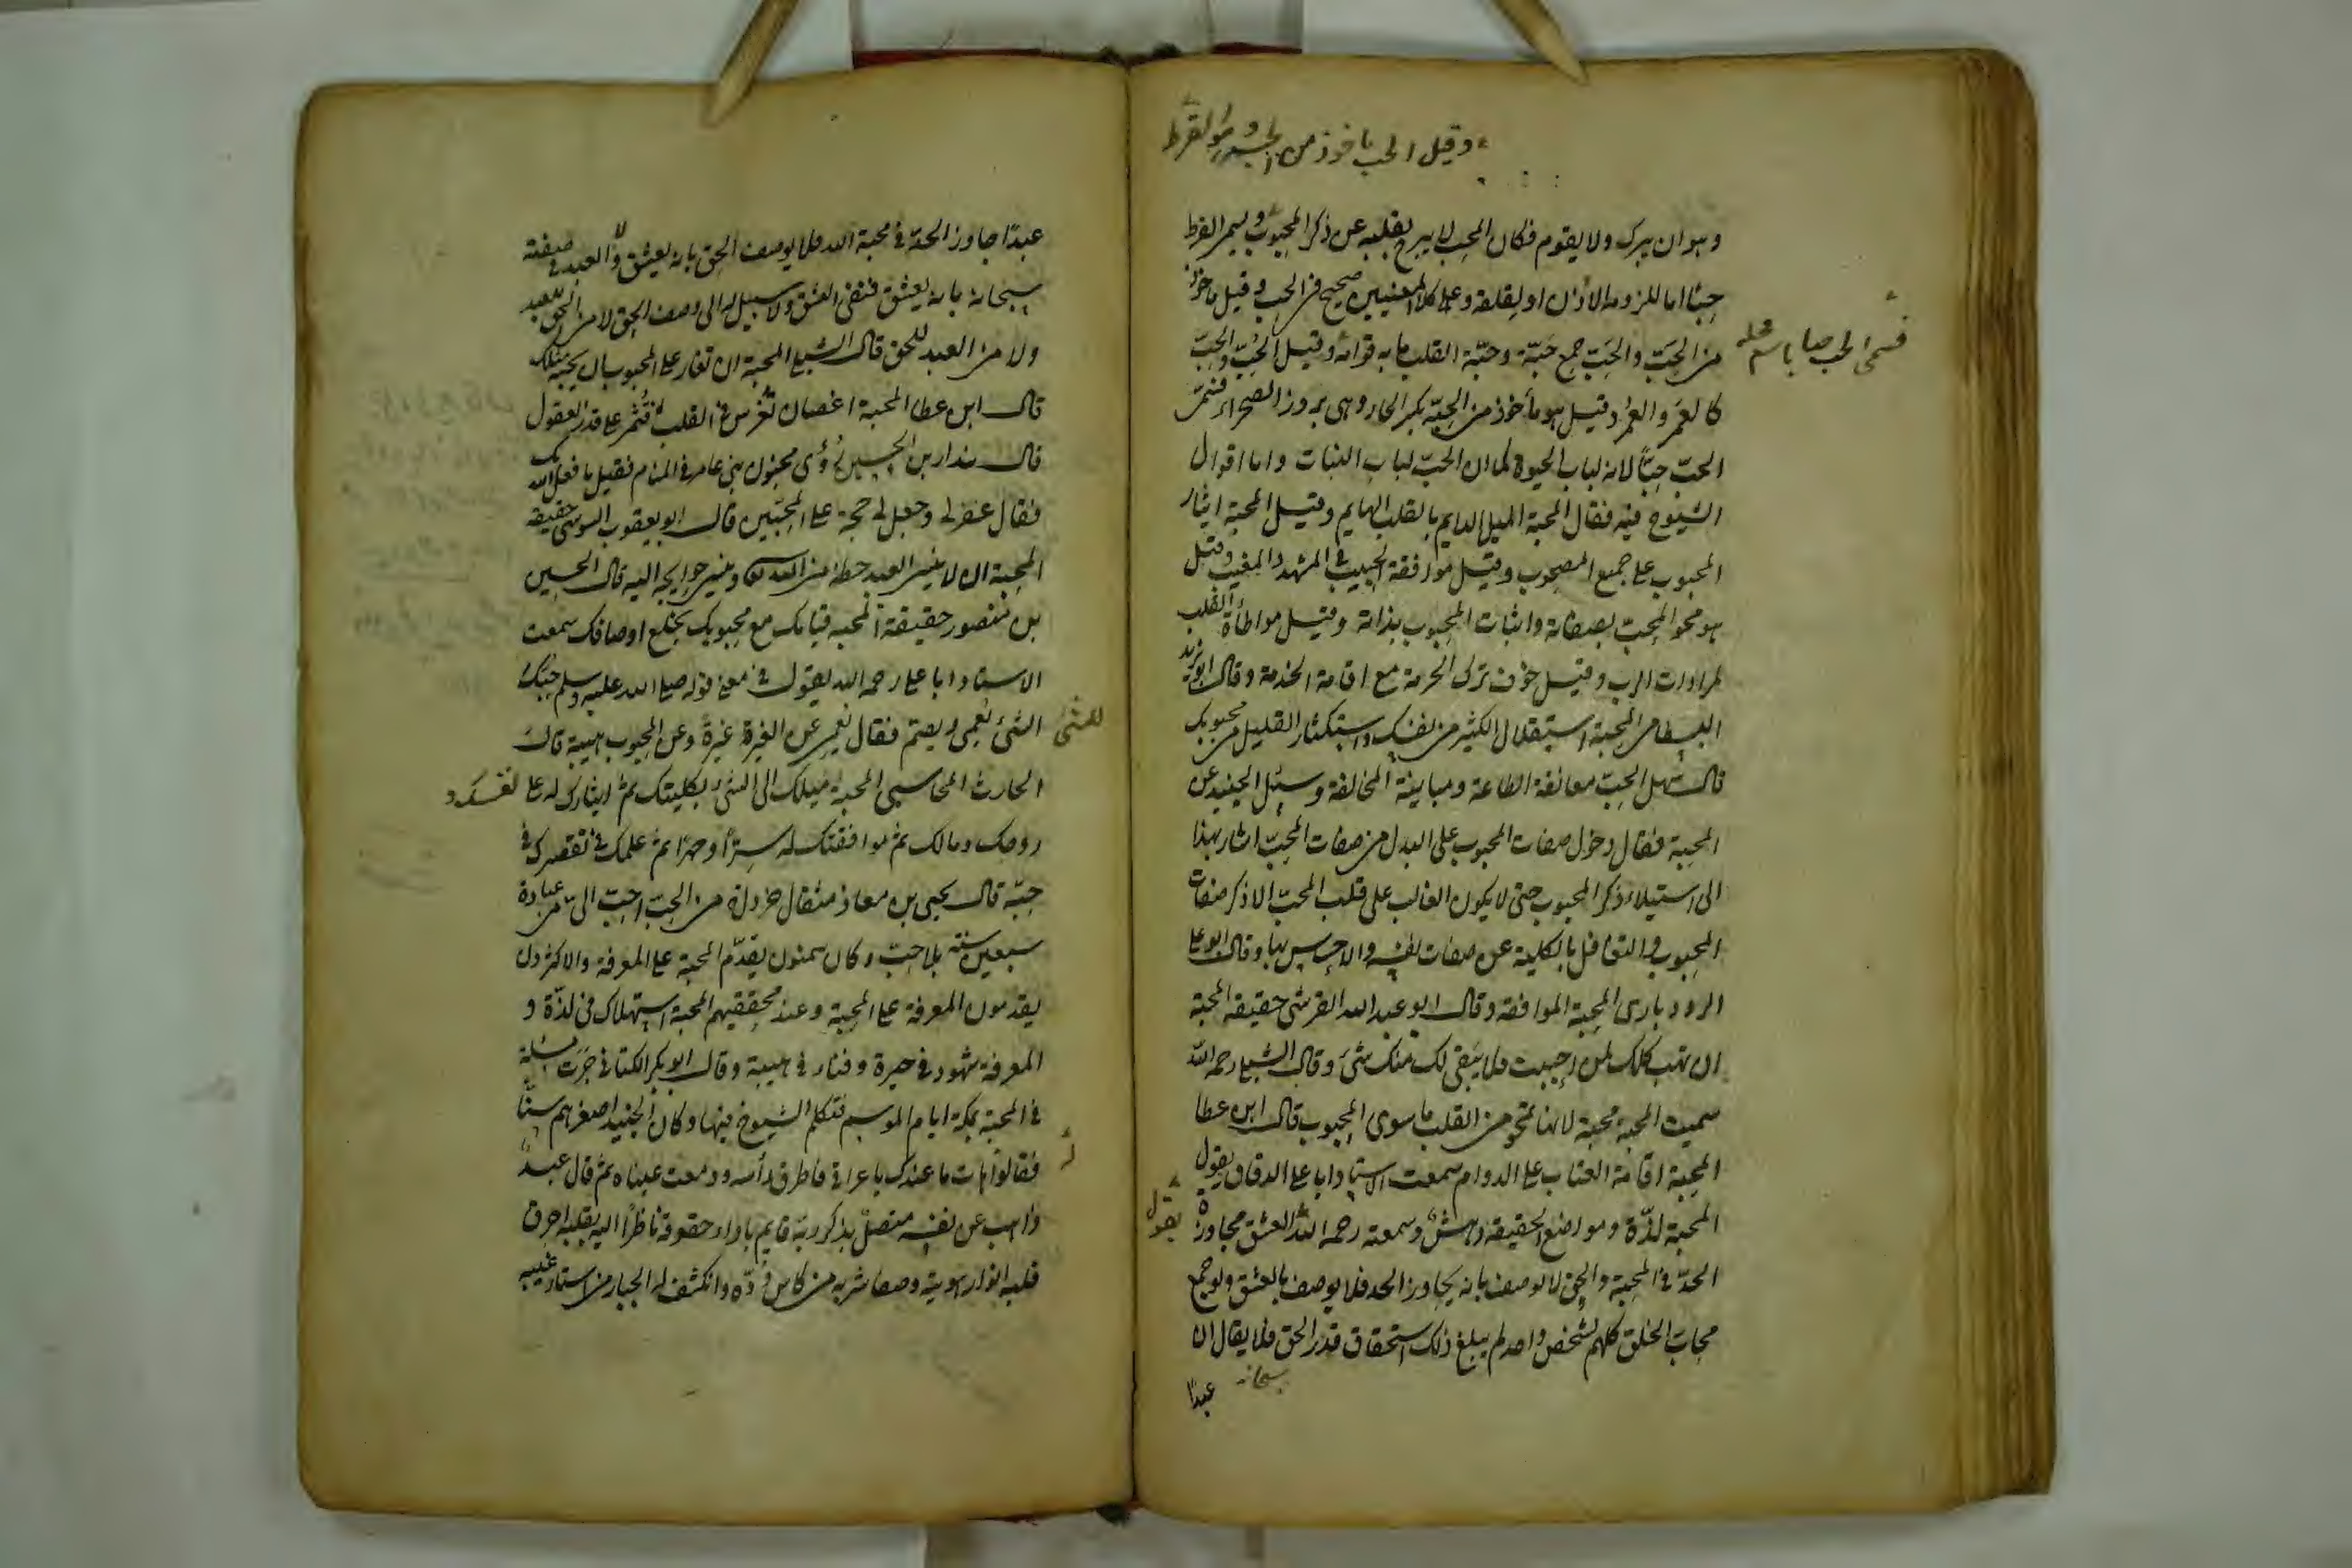 وقيل الحب ماخوذ من الحب وهو القرط
وهو ان يبرك ولا يقوم فكان المحب لا يبرح بقلبه عن ذكر المحبوب ويسمى القرط
حبًا اما للزومه الاذن او لقلقه وعلى كلا المعنيين صحيح في الحب وقيل ماخوذ
من الحَبّ والحَبّ جمع حَبّة وحبّة القلب ما به قوامه وقيل الحُبّ والحِبّ
فسمى الحب حبا باسم محله
كالعَمر والعُمر وقيل هو مأخوذ من الحِبّة بكسر الحاء وهى بزور الصحراء فسمّى
الحبّ حبًّا لانه لباب الحيوة كما ان الحبّ لباب النبات واما اقوال
الشيوخ فيه فقال المحبة الميل الدايم بالقلب الهايم وقيل المحبة ايثار
المحبوب على جميع المصحوب وقيل موافقة الحبيب في المشهد والمغيب وقيل
هو محو المحبّ بصفاته واثبات المحبوب بذاته وقيل مواطأة القلب
لمرادات الرب وقيل خوف ترك الحرمة مع اقامة الخدمة وقال ابو يزيد
البسطامى المحبة استقلال الكثير من نفسك واستكثار القليل من محبوبك
قال سهل الحبّ معانقة الطاعة ومباينة المخالفة وسئل الجنيد عن
المحبة فقال دخول صفات المحبوب على البدل من صفات المحبّ اشار بهذا
الى استيلاء ذكر المحبوب حتى لا يكون الغالب على قلب المحبّ الا ذكر صفات
المحبوب والتغافل بالكلية عن صفات نفسه والاحساس بها وقال ابو على
الرودبارى المحبة الموافقة وقال ابو عبد الله القرشى حقيقة المحبة
ان تهب كلك لمن احببت فلا يبقى لك منك شئ وقال الشبلى رحمه الله
سميت المحبة محبة لانها تمحو من القلب ما سوى المحبوب قال ابن عطا
المحبة اقامة العتاب على الدوام سمعت الاستاد ابا على الدقاق يقول
المحبة لذّة ومواضع الحقيقة دهش وسمعته رحمه الله العشق مجاوزة
يقول
الحدّ في المحبة والحق لا يوصف بانه يجاوز الحد فلا يوصف بالعشق ولو جمع
محابّ الخلق كلهم لشخص واحد لم يبلغ ذلك استحقاق قدر الحق فلا يقال ان
سبحانه
عبدًا
عبدًا جاوز الحد في محبة الله فلا يوصف الحق بانه يعشق ولا العبد في صفته
سبحانه بانه يعشق فنفى العشق ولا سبيل له الى وصف الحق لا من الحق للعبد
ولا من العبد للحق قال الشبلى المحبة ان تغار على المحبوب ان يحبه مثلك
قال ابن عطا المحبة اغصان تُغرس في القلب فتُثمر على قدر العقول
قال بندار بن الحسين رُؤى مجنون بنى عامر في المنام فقيل ما فعل الله بك
فقال غفر لى وجعل لى حجة على المحبّين قال ابو يعقوب السوسى حقيقة
المحبة ان لا ينسى العبد حظه من الله وينسى حوايجه اليه قال الحسين
بن منصور حقيقة المحبه قيامك مع محبوبك بخلع اوصافك سمعت
الاستاد ابا على رحمه الله يقول في معنى قوله صلى الله عليه وسلم حبّك
للشئ
الشئ يُعمى ويصم فقال يعمى عن الغيرة غيرةً وعن المحبوب هيبة قال
الحارث المحاسبى المحبة ميلك الى الشئ بكليتك ثم ايثارك له على نفسك و
روحك ومالك ثم موافقتك له سرًّا وجهرًا ثم علمك في تقصيرك في
حبّه قال يحيى بن معاذ مثقال خردلة من الحبّ احبّ الىّ من عبادة
سبعين سنة بلا حبّ وكان سمنون يقدّم المحبة على المعرفة والاكثرون
يقدمون المعرفة على المحبة وعند محققيهم المحبة استهلاك في لذّة و
المعرفة شهود في حيرة وفناء في هيبة وقال ابو بكر الكتانى جَرَت مسئلة
في المحبّة بمكة ايام الموسم فتكلم الشيوخ فيها وكان الجنيد اصغرهم سنًّا
فقالوا هات ما عندك يا عراقى فاطرق رأسه ودمعت عيناه ثم قال عبدٌ
ذاهب عن نفسه متصلٌ بذكر ربّه قايم باداء حقوقه ناظرًا اليه بقلبه احرق
قلبه انوار هويته وصفا شربه من كاس ودّه وانكشف له الجبار من استار غيبه